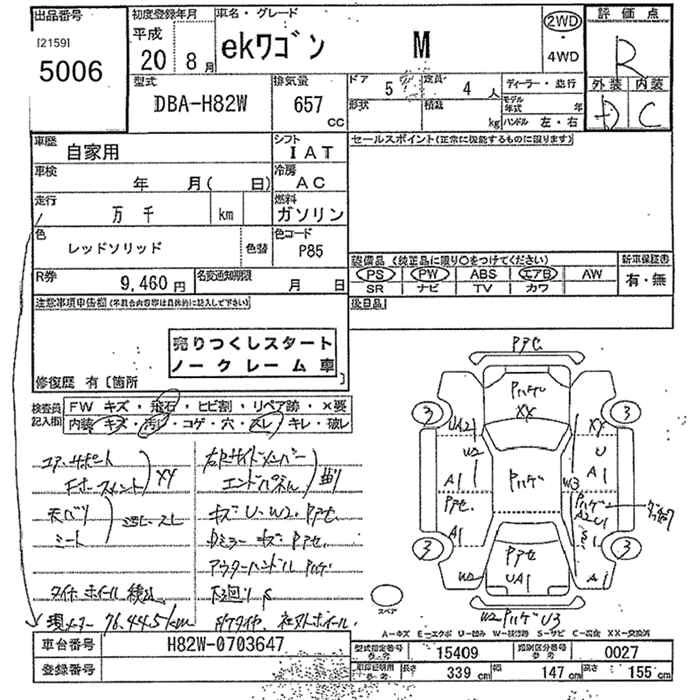 出品番号
[21591
5006
初度登録年月
平成
20 8 月
車名・グレード
ekワゴン M
2WD
・
4WD
評価点
R
外装 内装
D C
型式
DBA-H82W
排気量
657
CC
ドア
5
定員
4 人
形状
積載
kg
ディーラー・並行
モデル
年式 年
ハンドル 左・右
車歴
自家用
シフト
IAT
車検
年 月( 日)
冷房
AC
走行
万 千 km
燃料
ガソリン
色
レッドソリッド
色替
色コード
P85
R券
9,460 円
名変通知期限
月 日
セールスポイント(正常に機能するものに限ります)
装備品 (純正品に限り○をつけてください)
PS PW ABS エアB AW
SR ナビ TV カワ
新車保証書
有・無
後日品
注意事項申告欄(不具合内容等は具体的に記入して下さい)
売りつくしスタート
ノークレーム車
修復歴 有 [箇所
検査員
記入欄
FW キズ・飛石・ヒビ割・リペア跡・×要
内装 キズ・汚レ・コゲ・穴・スレ・キレ・破レ
エアーサポート
XX
天バリ
シート
右Rサイドメンバー
エンドパネル
キズ U・W2.Pアセ
Dミラー キズ Pアセ
アウターハンドル Pハゲ
下廻り S
現メーター 76.445km
社外ホイール
Pアセ
Pハゲ
XX
3
3
UA2
W2
A1
Pアセ
A1
Pハゲ
XX
U
A1
W3
Pハゲ
A2U1
S1
Pアセ
UA1
W2
A1
3
3
W2 Pハゲ U3
スペア
A-キズ E-エクボ U-凹み W-板金跡 S-サビ C-腐食 XX-交換済
車台番号
H82W-0703647
登録番号
型式指定番号
参考
15409
類別区分番号
参考
0027
長さ 339 cm
幅 147 cm
高さ 155 cm